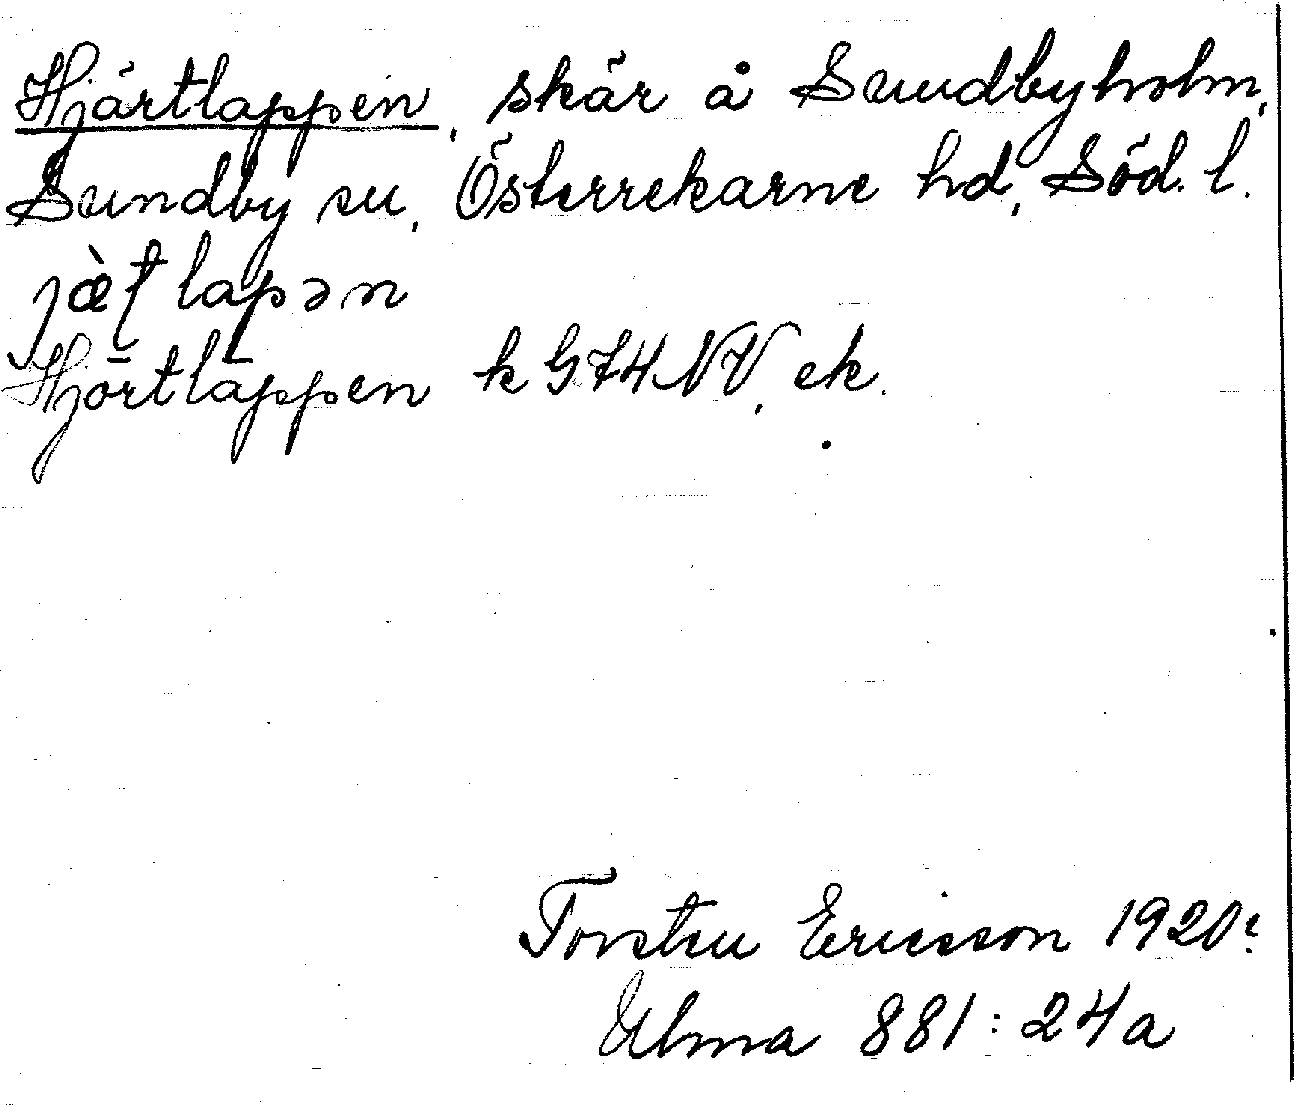 Hjärtlappen, skär å Sundbyholm,
Sundby sn, Österrekarne hd, Söd. l.
jæ̀ʈlapən
Hjörtlappen k G74NV, ek.
Torsten Ericsson 1920?
Ulma 881:24a